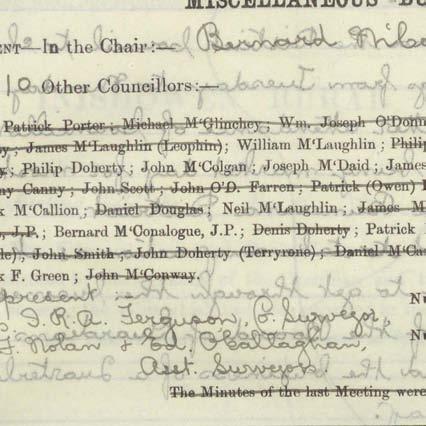 MISCELLANEOUS
ENT—In the Chair:— Bernard
10 Other Councillors:—
Patrick Porter; Michael M'Glinchey; Wm. Joseph O'Donn
y; James M'Laughlin (Leophin); William M'Laughlin; Philip
y; Philip Doherty; John M'Colgan; Joseph M'Daid; James
ny Canny; John Scott; John O'D. Farren; Patrick (Owen)
k M'Callion; Daniel Douglas; Neil M'Laughlin; James M
, J.P.; Bernard M'Conalogue, J.P.; Denis Doherty; Patrick
le); John Smith; John Doherty (Terryrone); Daniel M'Ca
k F. Green; John M'Conway.
present :—
J. R. A. Ferguson, Co. Surveyor,
Nolan & Ed O'Callaghan,
Asst. Surveyors.
The Minutes of the last Meeting were